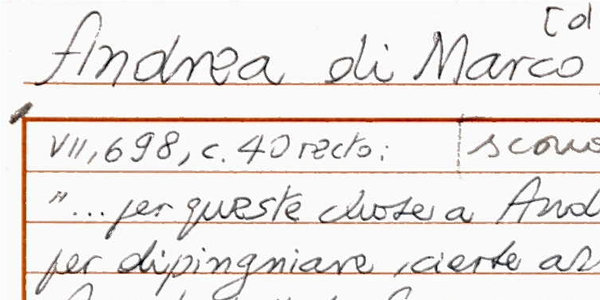 [d
Andrea di Marco
VII, 698, c. 40 recto:
"... per queste chose a And
per dipingniare, cierte